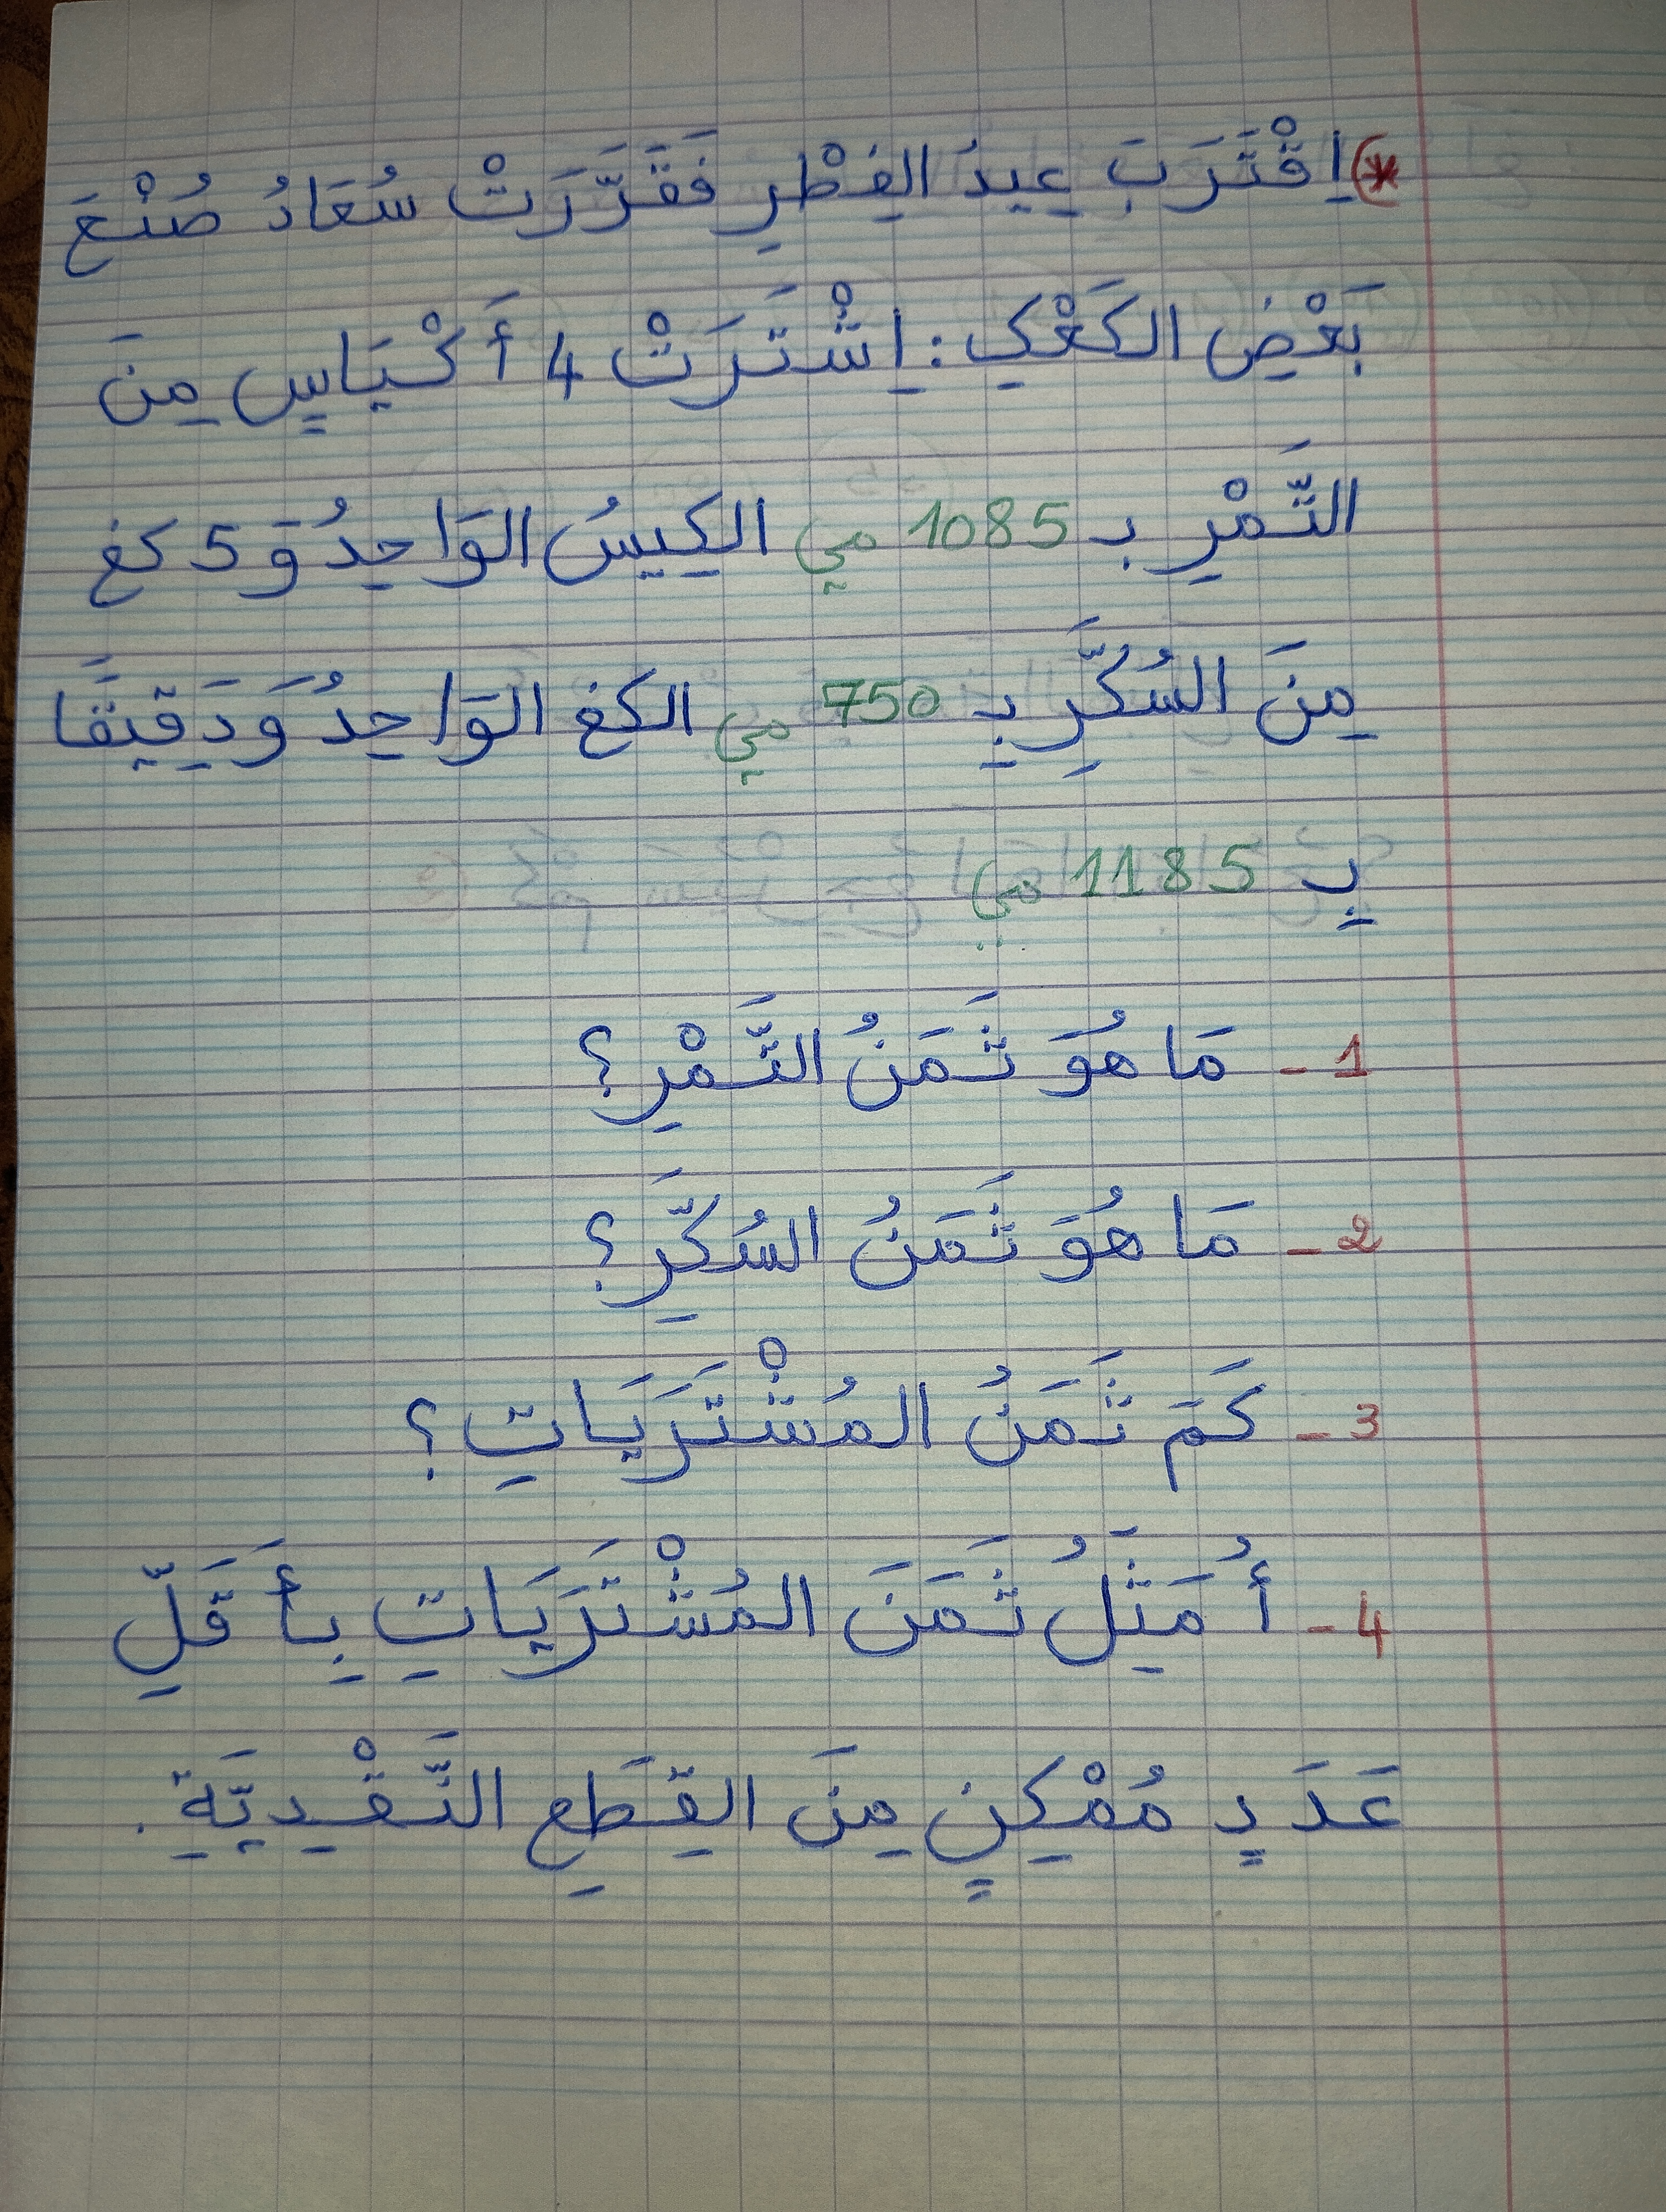 *) اِقْتَرَبَ عِيدُ الفِطْرِ فَقَرَّرَتْ سُعَادُ صُنْعَ
بَعْضِ الكَعْكِ : اِشْتَرَتْ 4 أَكْيَاسٍ مِنَ
التَّمْرِ بـ 1085 مي الكِيسُ الوَاحِدُ وَ 5 كغ
مِنَ السُكَّرِ بِـ 750 مي الكغ الوَاحِدُ وَدَقِيقًا
بِـ 1185 مي
1 - مَا هُوَ ثَمَنُ التَّمْرِ ؟
2 - مَا هُوَ ثَمَنُ السُكَّرِ ؟
3 - كَمْ ثَمَنُ المُشْتَرَيَاتِ ؟
4 - أُمَثِّلُ ثَمَنَ المُشْتَرَيَاتِ بِأَقَلِّ
عَدَدٍ مُمْكِنٍ مِنَ القِطَعِ النَّقْدِيَّةِ .